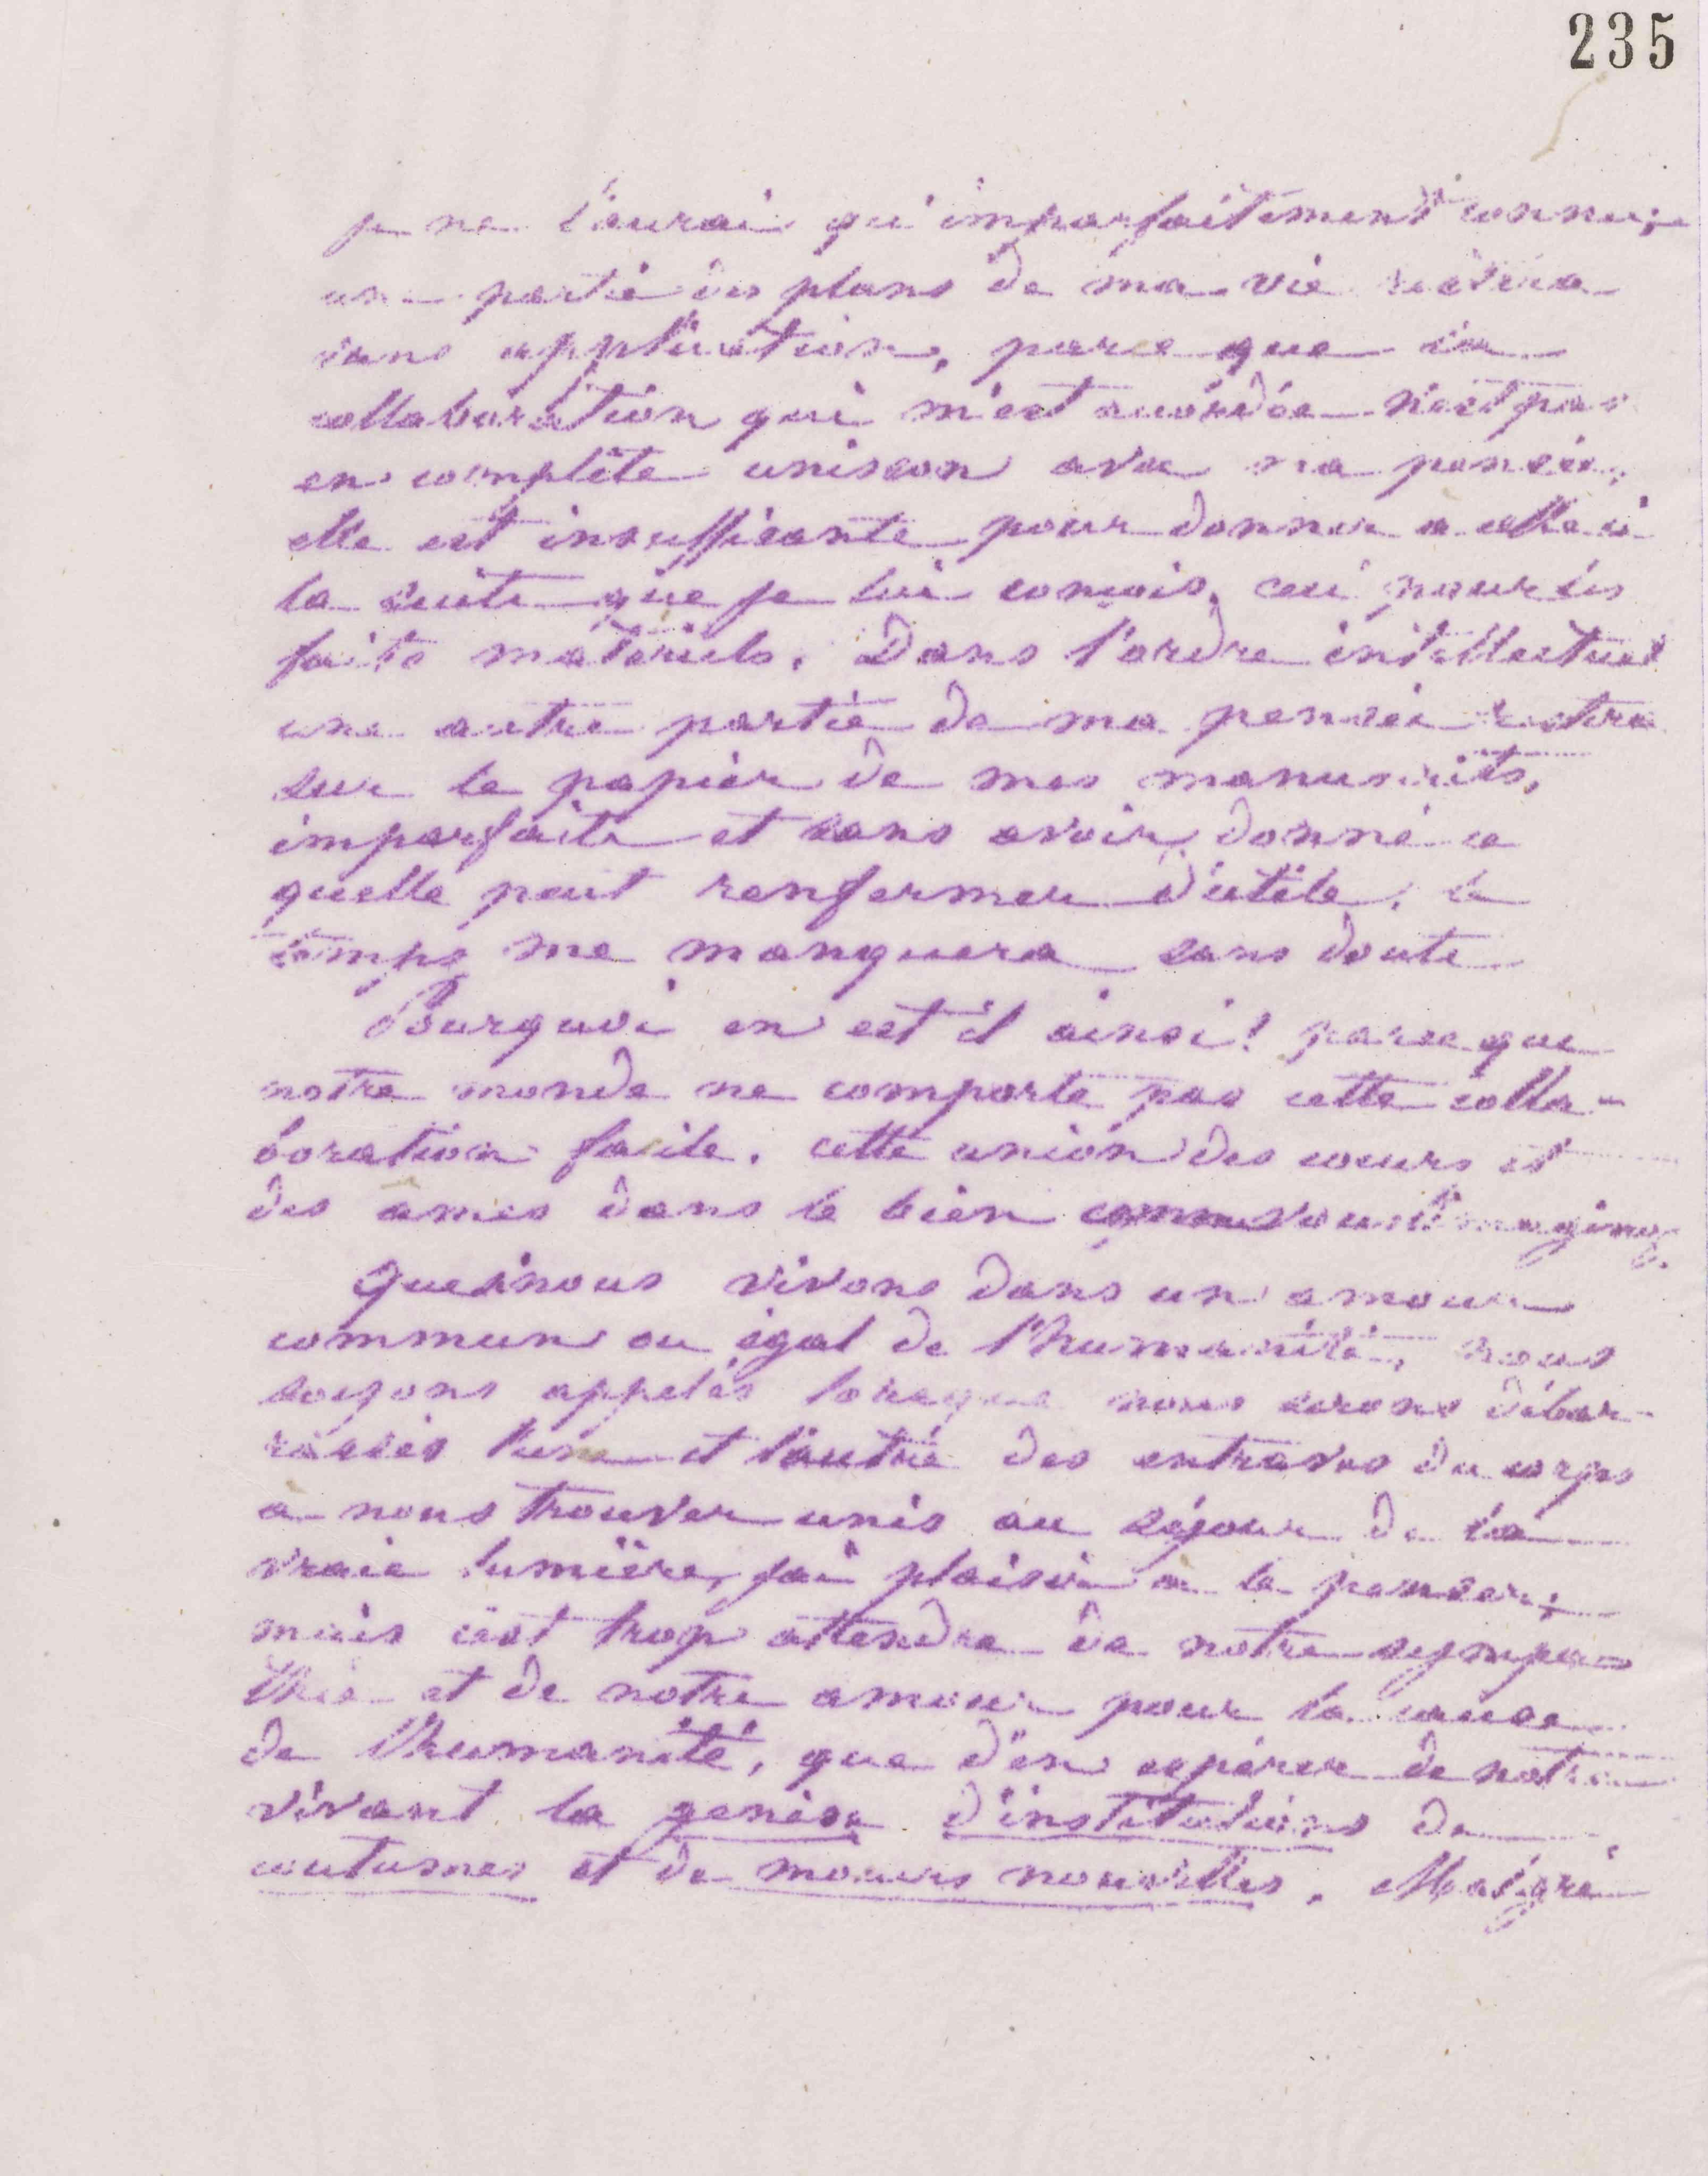 235
je ne l'aurai qu'imparfaitement connue;
une partie des plans de ma vie restera
sans application, parce que la
collaboration qui m'est accordée n'est pas
en complète unisson avec ma pensée,
elle est insuffisante pour donner a celle ci
la suite que je lui conçois, ceci pour les
faits matériels. Dans l'ordre intellectuel
une autre partie de ma pensée restera
sur le papier de mes manuscrits,
imparfaite et sans avoir donné ce
quelle peut renfermer d'utile. le
temps me manquera sans doute
Pourquoi en est il ainsi! parce que
notre monde ne comporte pas cette colla-
boration facile. cette union des coeurs et
des âmes dans le bien comme vous l'imaginez.
Que nous vivons dans un amour
commun ou égal de l'humanité, nous
soyons appelés lorsque nous serons débar-
rassés l'un et l'autre des entraves du corps
a nous trouver unis au séjour de la
vraie lumière, j'ai plaisir a le penser;
mais c'est trop attendre de notre sympa-
thie et de notre amour pour la cause
de l'humanité, que d'en espérer de notre
vivant la genèse d'institutions de
coutumes et de moeurs nouvelles. Malgré